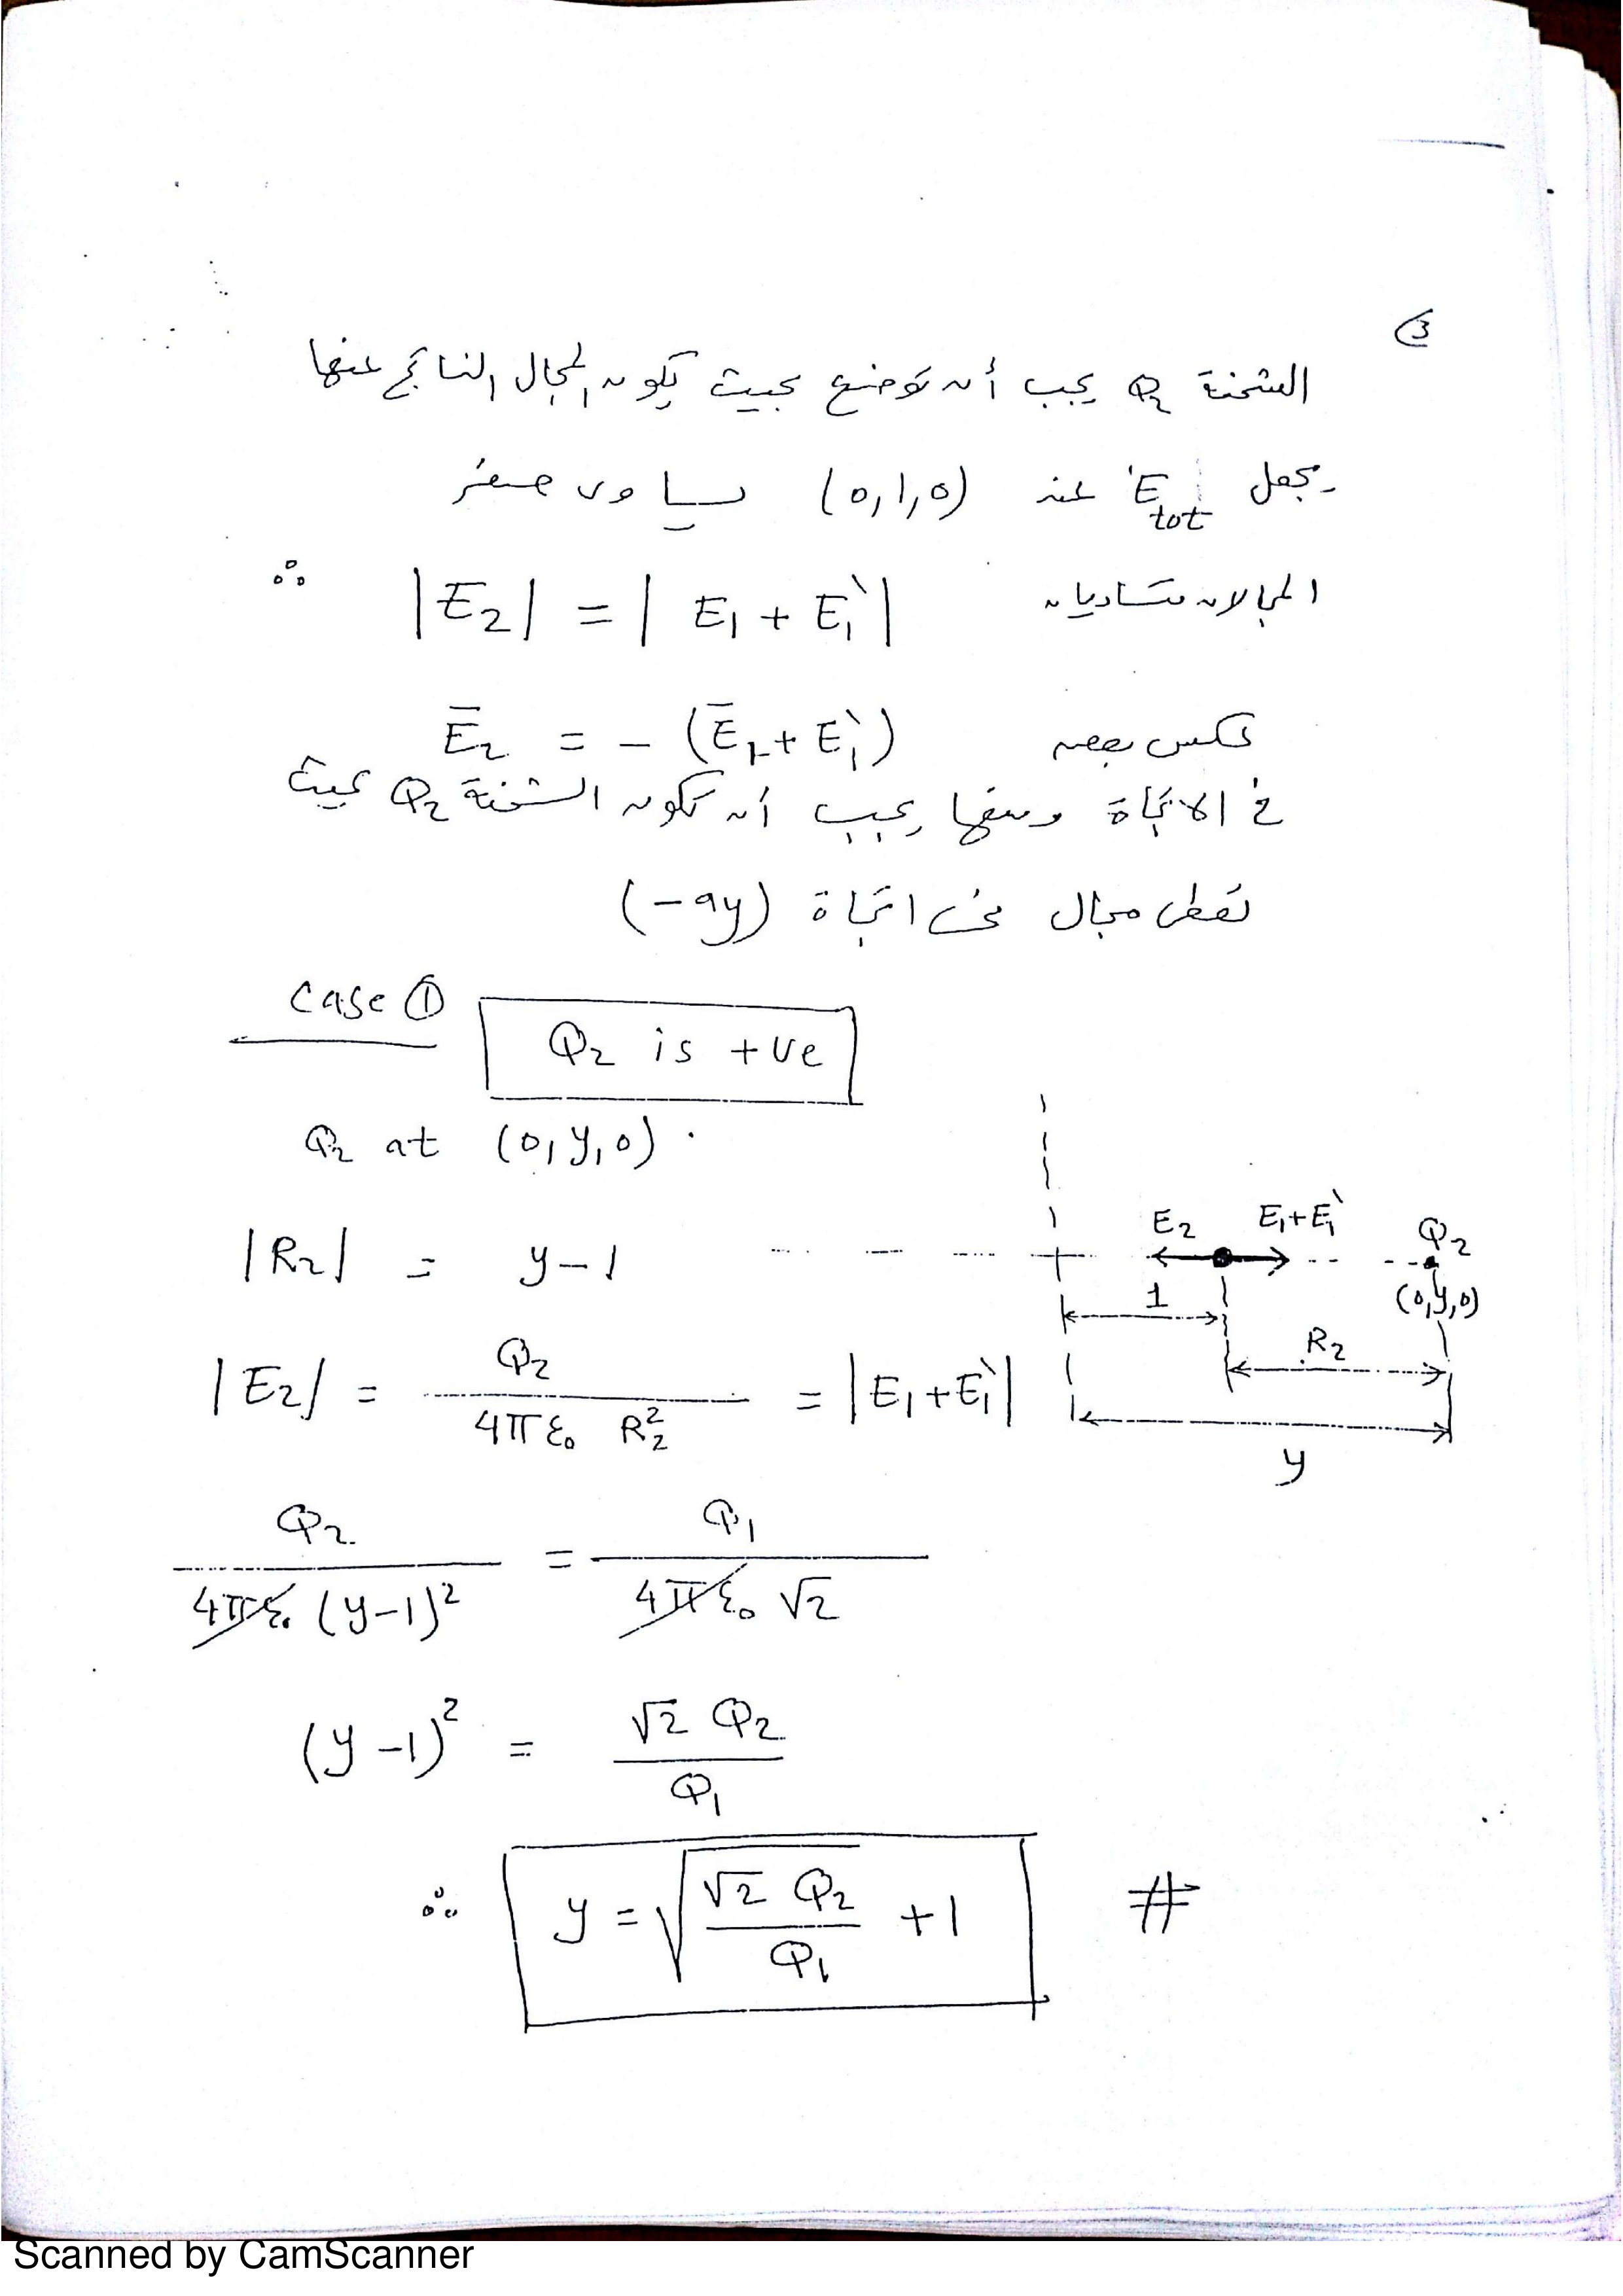 3
الشحنة Q₂ يجب أن توضع بحيث يكون المجال الناتج عنها
يجعل E_tot عند (0,1,0) يساوى صفر
المجالان متساويان ∴ |E₂| = |E₁ + E₁`|
عكس بعض Ē₂ = − (Ē₁ + E₁`)
فى الاتجاة ومنها يجب أن تكون الشحنة Q₂ بحيث
تعطى مجال فى اتجاة (−ay)
Case ①
Q₂ is +ve
Q₂ at (0,y,0) .
|R₂| = y−1
E₂ E₁+E₁` Q₂
(0,y,0)
1
R₂
y
|E₂| = Q₂ / 4πε₀ R₂² = |E₁+E₁`|
Q₂ / 4πε₀ (y−1)² = Q₁ / 4πε₀ √2
(y−1)² = √2 Q₂ / Q₁
∴ y = √(√2 Q₂ / Q₁) + 1 #
Scanned by CamScanner